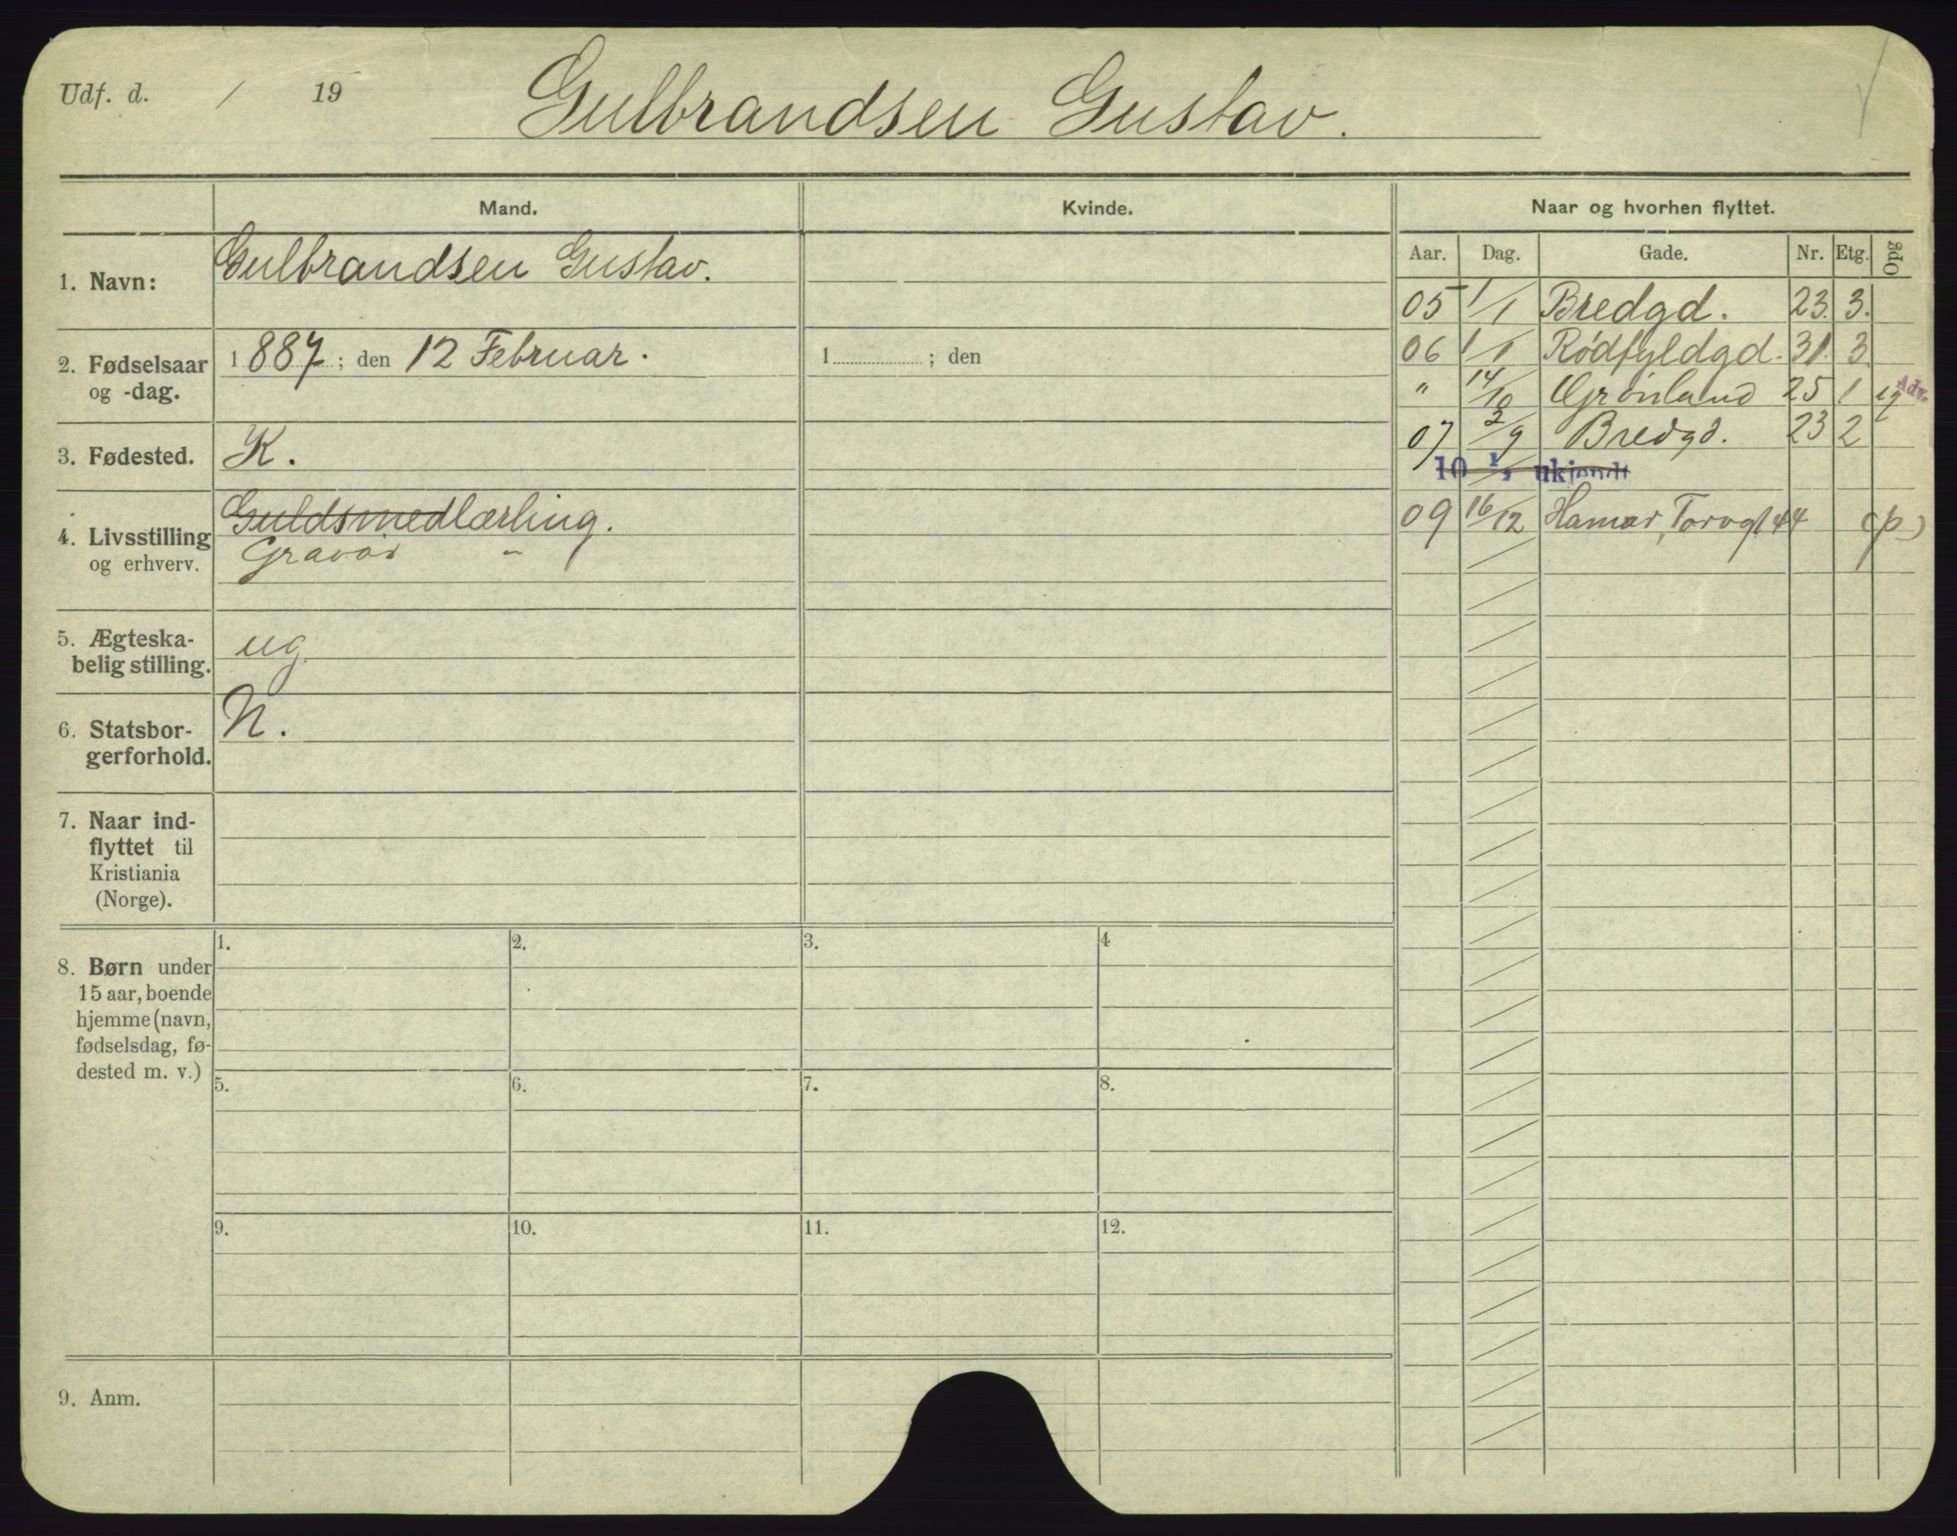 Udf. d. / 19
Gulbrandsen Gustav.
Mand.
Kvinde.
Naar og hvorhen flyttet.
Aar. Dag. Gade. Nr. Etg. Opg
1. Navn:
Gulbrandsen Gustav.
2. Fødselsaar
og -dag.
1887; den 12 Februar.
1 ; den
3. Fødested.
K.
4. Livsstilling
og erhverv.
Guldsmedlærling.
Gravør "
5. Ægteska-
belig stilling.
ug.
6. Statsbor-
gerforhold.
N.
7. Naar ind-
flyttet til
Kristiania
(Norge).
8. Børn under
15 aar, boende
hjemme (navn,
fødselsdag, fø-
dested m. v.)
1. 2. 3. 4
5. 6. 7. 8.
9. 10. 11. 12.
9. Anm.
05 1/1 Bredgd. 23. 3.
06 1/1 Rødfyldgd. 31. 3
" 14/10 Grønland 25 1 Adv.
07 2/9 Bredgd. 23 2
10 ukjendt
09 16/12 Hamar, Torvgt 44